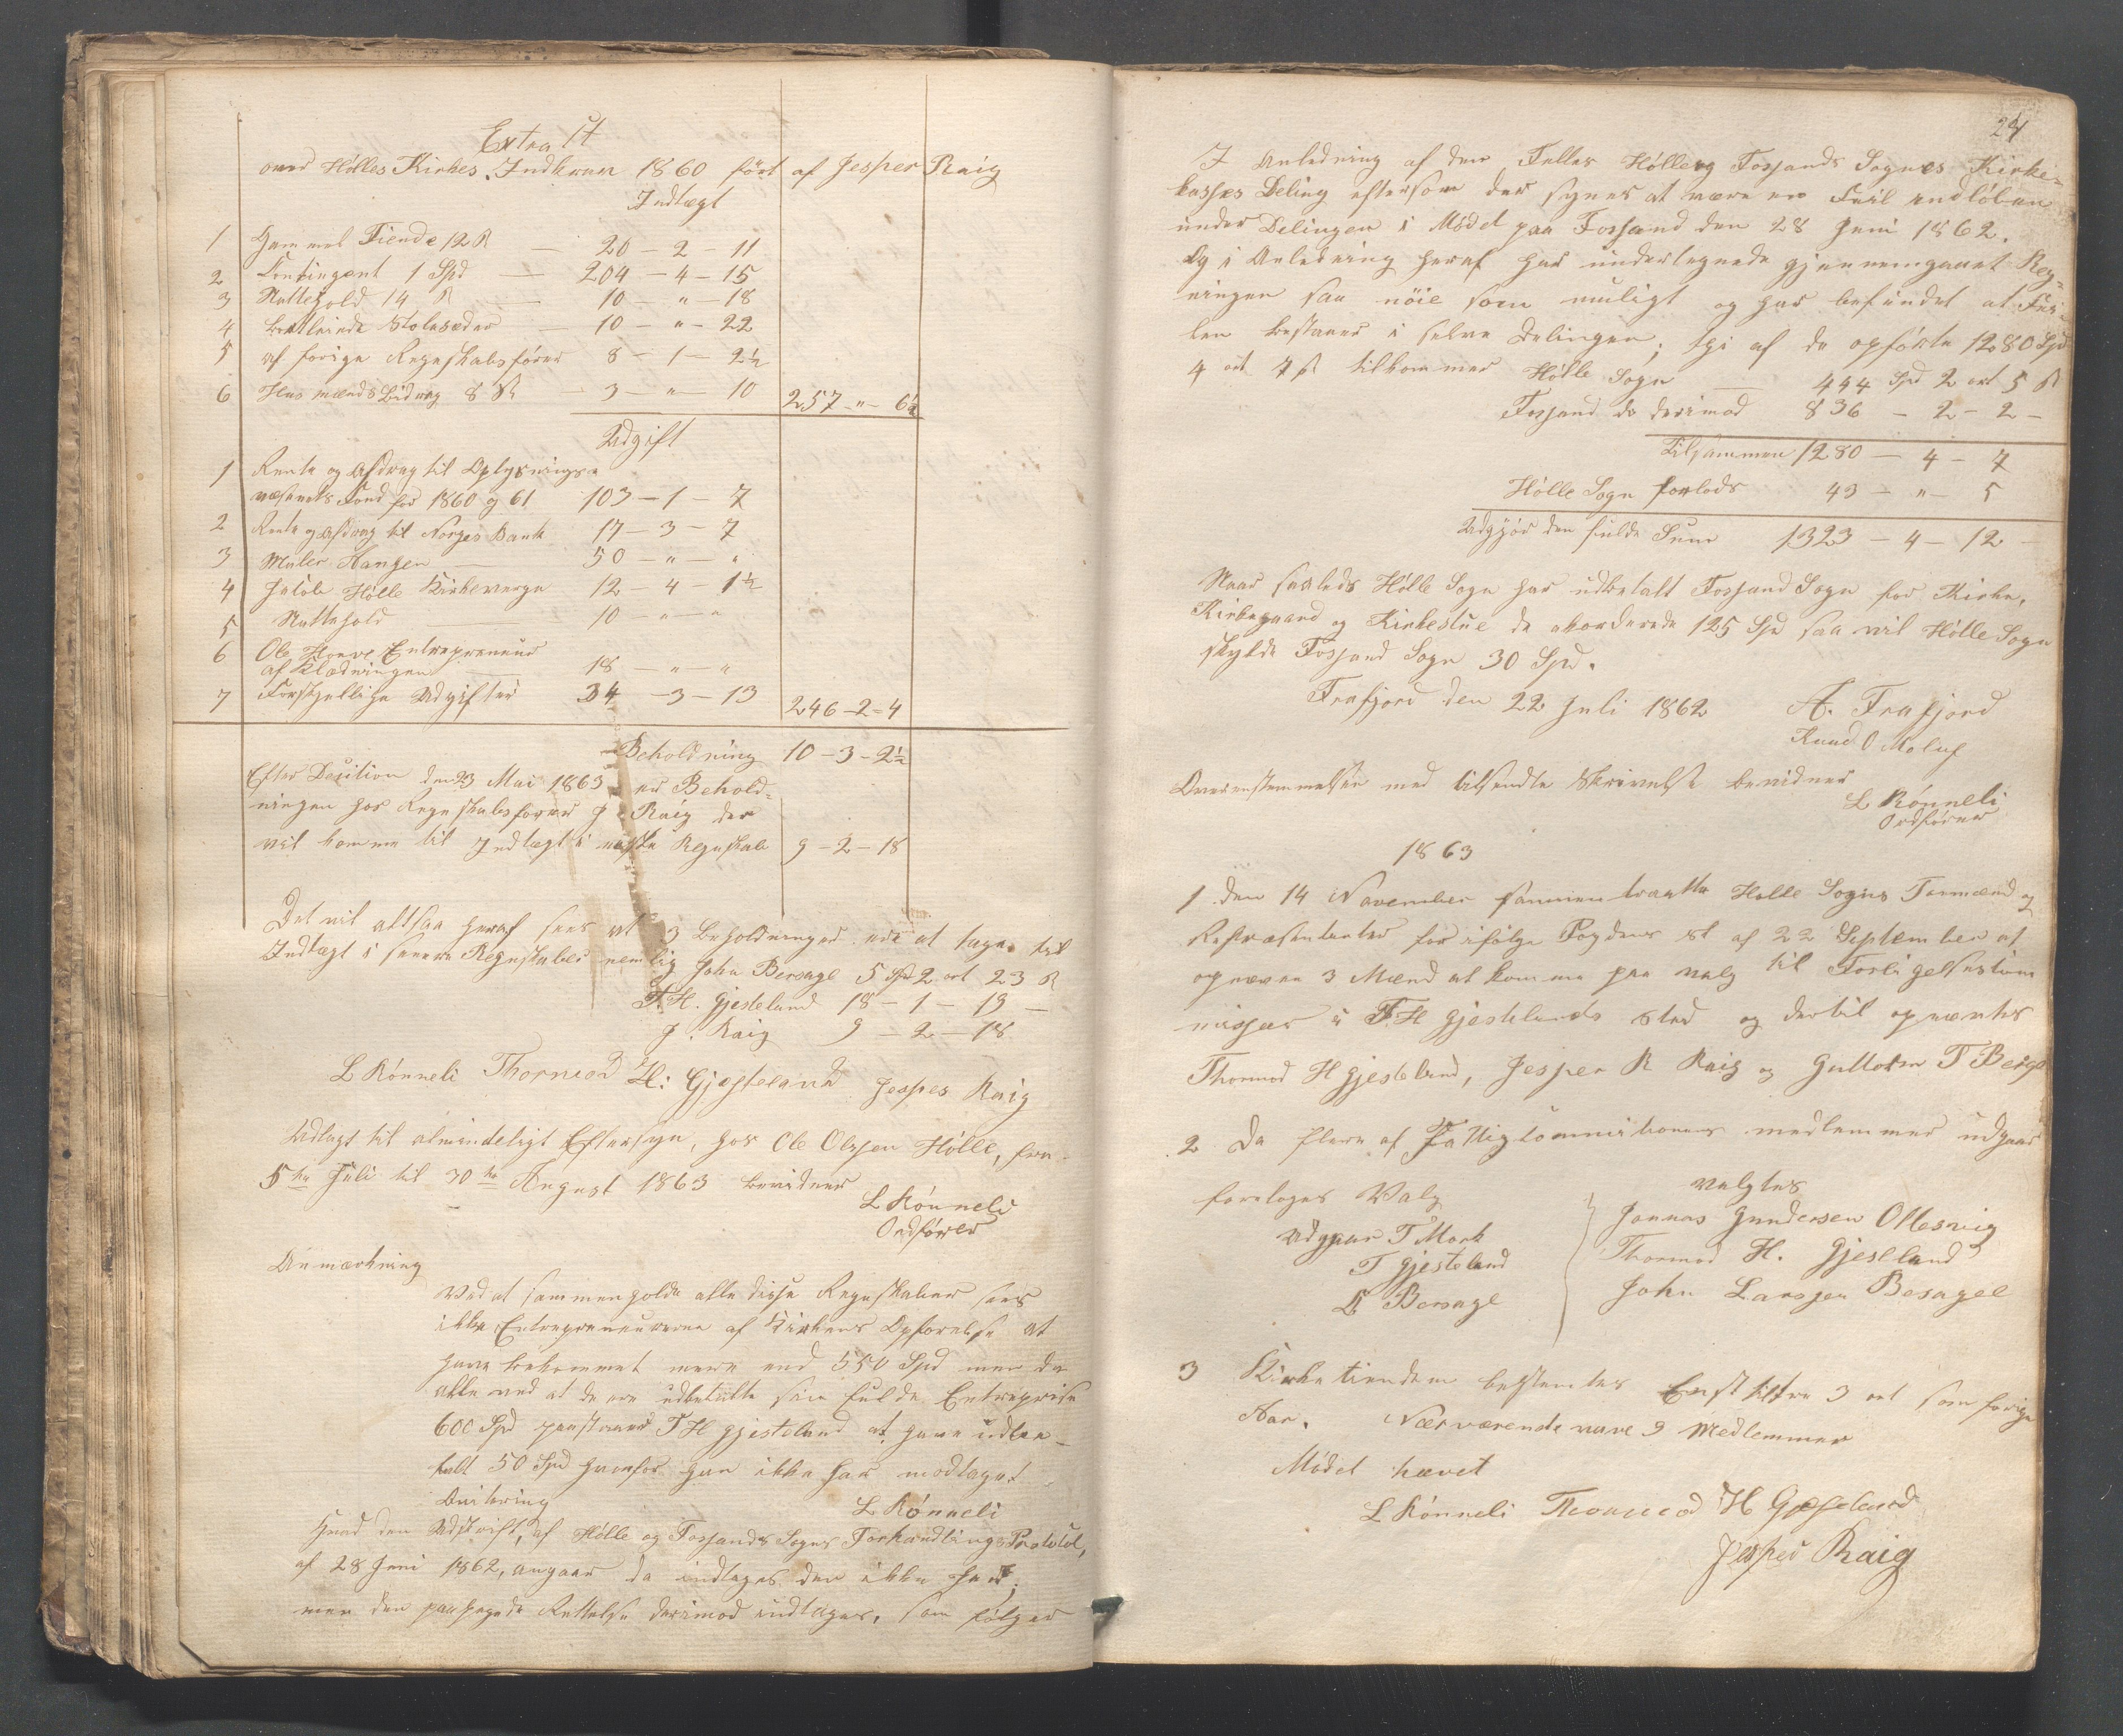 Extract
over Hölles Kirkes Indkrav 1860 fört af Jesper Raig
Indtægt
1 Gammel Tiende 12 ß — 20 - 2 - 11
2 Contingent 1 Spd — 204 - 4 - 15
3 Nattehold 14 ß — 10 - " - 18
4 Stolesæder — 10 - " - 22
5 af forige Regnskabsförer 8 - 1 - 2½
6 Husmænds Bidrag 8 ß — 3 - " - 10 257 - " - 6½
Udgift
1 Rente og Afdrag til Oplysnings-
væsenets Fond for 1860 og 61 103 - 1 - 7
2 Rente og Afdrag til Norges Bank 17 - 3 - 7
3 Maler Hangen — 50 - " - "
4 Jakob Hölle Kirkeverge 12 - 4 - 1½
5 Nattehold — 10 - " - "
6 Ole Entrepreneur
af Klædningen — 18 - " - "
7 Forskjellige Udgifter 34 - 3 - 13 246 - 2 - 4
Beholdning 10 - 3 - 2½
Efter Decition den 23 Mai 1863 er Behold-
ningen hos Regnskabsförer J Raig der
vil komme til Indtægt i næste Regnskab 9 - 2 - 18
Det vil altsaa heraf sees at 3 Beholdninger ere at tage til
Indtægt i senere Regnskaber nemlig John Bersage 5 Spd 2 ort 23 ß
T. H. Gjesteland 18 - 1 - 19 -
J. Raig 9 - 2 - 18
L Rönneli Thormod H: Gjesteland Jesper Raig
Udlagt til almindeligt Eftersyn, hos Ole Olssen Hölle, fra
5te Juli til 30te August 1863 bevidner
L Rönneli
Ordförer
Anmærkning
Ved at sammenholde alle disse Regnskaber sees
ikke Entrepreneurerne af Kirkens Opförelse at
have bekommet mere end 550 Spd men da
alle ved at de ere udbetalte sin fulde Entreprise
600 Spd paastaaer T H Gjesteland at have udbe-
talt 50 Spd hvorfor han ikke har modtaget
Qvitering
L Rönneli
Hvad den Udskrift, af Hölle og Fossands Sognes Forhandlings Protokol,
af 28 Juni 1862, angaar da indtages den ikke her;
men den paahegede Rettelse derimod indtages, som fölger
24
I Anledning af den Felles Hölle og Fossands Sognes Kirke-
kasses Deling eftersom der synes at være en Feil indlöben
under Delingen i Mödet paa Fossand den 28 Juni 1862.
Og i Anledning heraf har undertegnede gjennemgaaet Reg-
ningen saa nöie som muligt og har befundet at Fei-
len bestaaer i selve Delingen; thi af de opförte 1280 Spd
4 ort 7 ß tilkommer Hölle Sogn — 444 Spd 2 ort 5 ß
Fossand do derimod 836 - 2 - 2 -
Tilsammen 1280 - 4 - 7
Hölle Sogn forlods 43 - " - 5
Udgjör den fulde Sum 1323 - 4 - 12 -
Naar saaledes Hölle Sogn har udbetalt Fossand Sogn for Kirke,
Kirkegaard og Kirkestue de akorderede 125 Spd saa vil Hölle Sogn
skylde Fossand Sogn 30 Spd.
Frafjord den 22 Juli 1862 A. Frafjord
Knud O Molaug
Overenstemmelsen med tilsendte Skrivelse bevidner
L Rönneli
Ordförer
1863
1. Den 14 November sammentraadte Holle Sogns Formænd og
Repræsentanter for ifölge Fogdens st af 22 September at
opnævne 3 Mænd at komme paa valg til Forligelsescom
missær i T. H Gjestelands sted og dertil opnævntes
Thormod H Gjesteland, Jesper R Raig og Guttorm T Berge
2 Da flere af Fattigcommissionens medlemmer udgaar
foretoges Valg valgtes
Udgaar T Mork Jonnas Gundersen Ollesvig
T Gjesteland Thormod H. Gjesteland
L Bersage John Larssen Besagel
3 Kirketienden bestemtes 3 ort som forige
Aar. Nærværende vare 9 Medlemmer
Mödet hævet
L Rönneli Thormod H Gjesteland
Jesper Raig